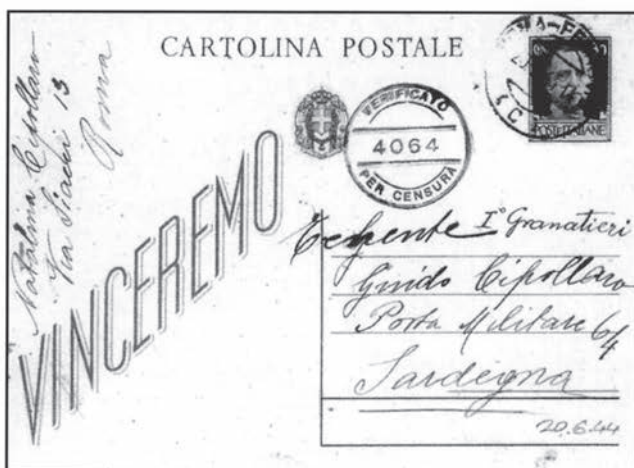 CARTOLINA POSTALE
Natalina Cipollaro
Via Siacci 13
Roma
VERIFICATO
4064
PER CENSURA
POSTE ITALIANE
VINCEREMO
I° Granatieri
Guido Cipollaro
Posta Militare 64
Sardegna
20.6.44